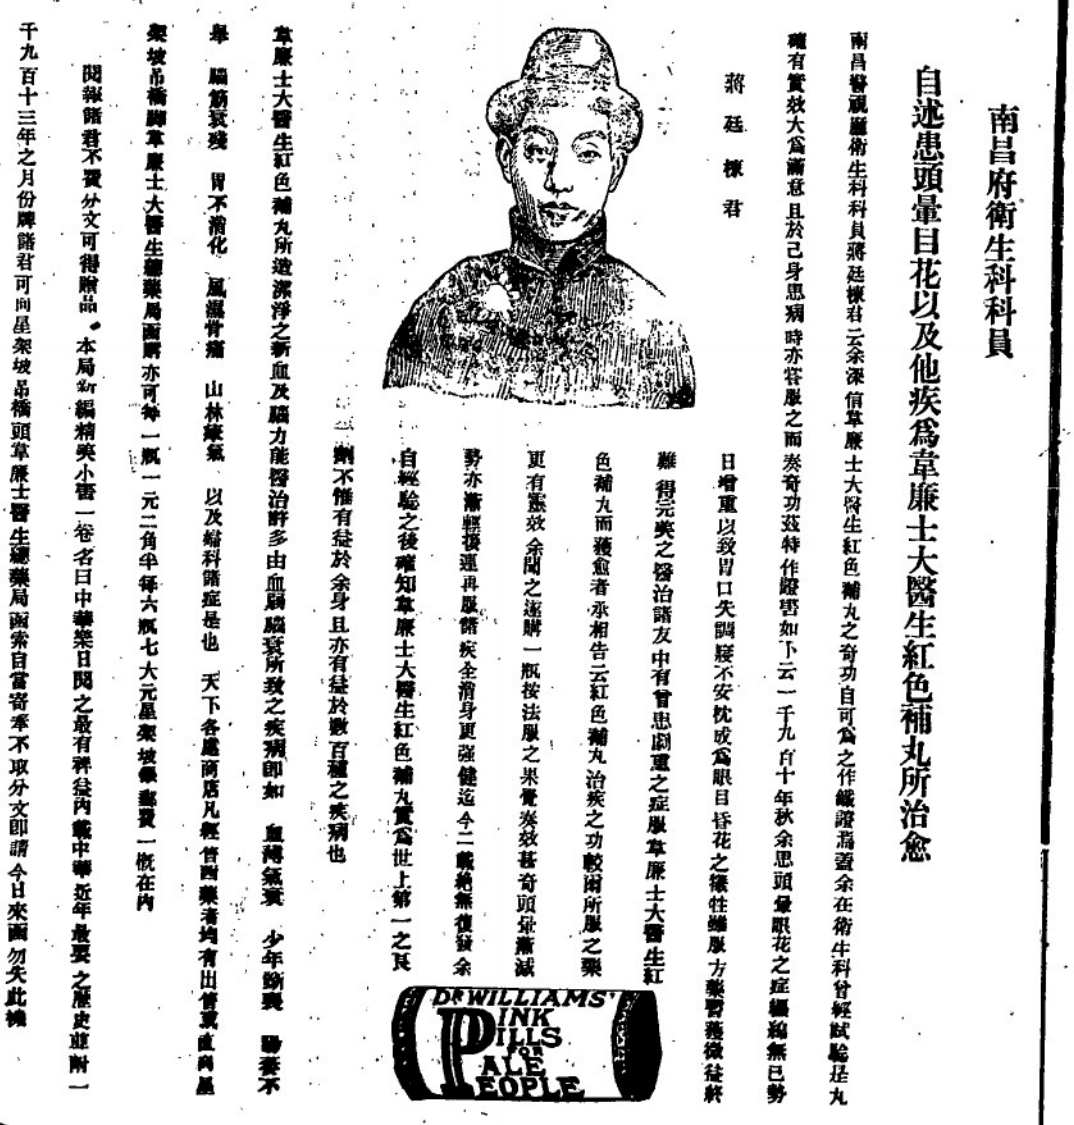 南昌府衛生科科員
自述患頭暈目花以及他疾爲韋廉士大醫生紅色補丸所治愈
南昌醫視廳衛生科科員蔣廷棟君云余深信韋廉士大醫生紅色補丸之奇功自可爲之作鐵證焉蓋余在衛生科曾經試驗是丸
確有實效大爲滿意且於己身患病時亦嘗服之而奏奇功茲特作證書如下云一千九百十年秋余患頭暈眼花之症纒綿無已勢
蔣廷棟君
日增重以致胃口失調寢不安枕成爲眼目昏花之犧牲雖服方藥暫獲微益終
難得完美之醫治諸友中有曾患劇重之症服韋廉士大醫生紅
色補丸而獲愈者承相告云紅色補丸治疾之功較爾所服之藥
更有靈效余聞之遂購一瓶按法服之果覺奏效甚奇頭暈漸減
勢亦漸輕接連再服諸疾全消身更强健迄今二載絶無復發余
自經驗之後確知韋廉士大醫生紅色補丸實爲世上第一之良
劑不惟有益於余身且亦有益於數百種之疾病也
韋廉士大醫生紅色補丸所造潔淨之新血及腦力能醫治許多由血弱腦衰所致之疾病卽如 血薄氣衰 少年斲喪 陽萎不
舉 腦筋衰殘 胃不消化 風濕骨痛 山林瘴氣 以及婦科諸症是也 天下各處商店凡經售西藥者均有出售或直向星
架坡吊橋脚韋廉士大醫生總藥局函購亦可每一瓶一元二角半每六瓶七大元星架坡銀郵費一概在内
閱報諸君不費分文可得贈品 本局新編精美小書一卷名曰中華樂日閱之最有裨益内載中華近年最要之歷史並附一
千九百十三年之月份牌諸君可向星架坡吊橋頭韋廉士醫生總藥局函索自當寄奉不取分文卽請今日來函勿失此機
DR WILLIAMS'
PINK
PILLS
FOR
PALE
PEOPLE